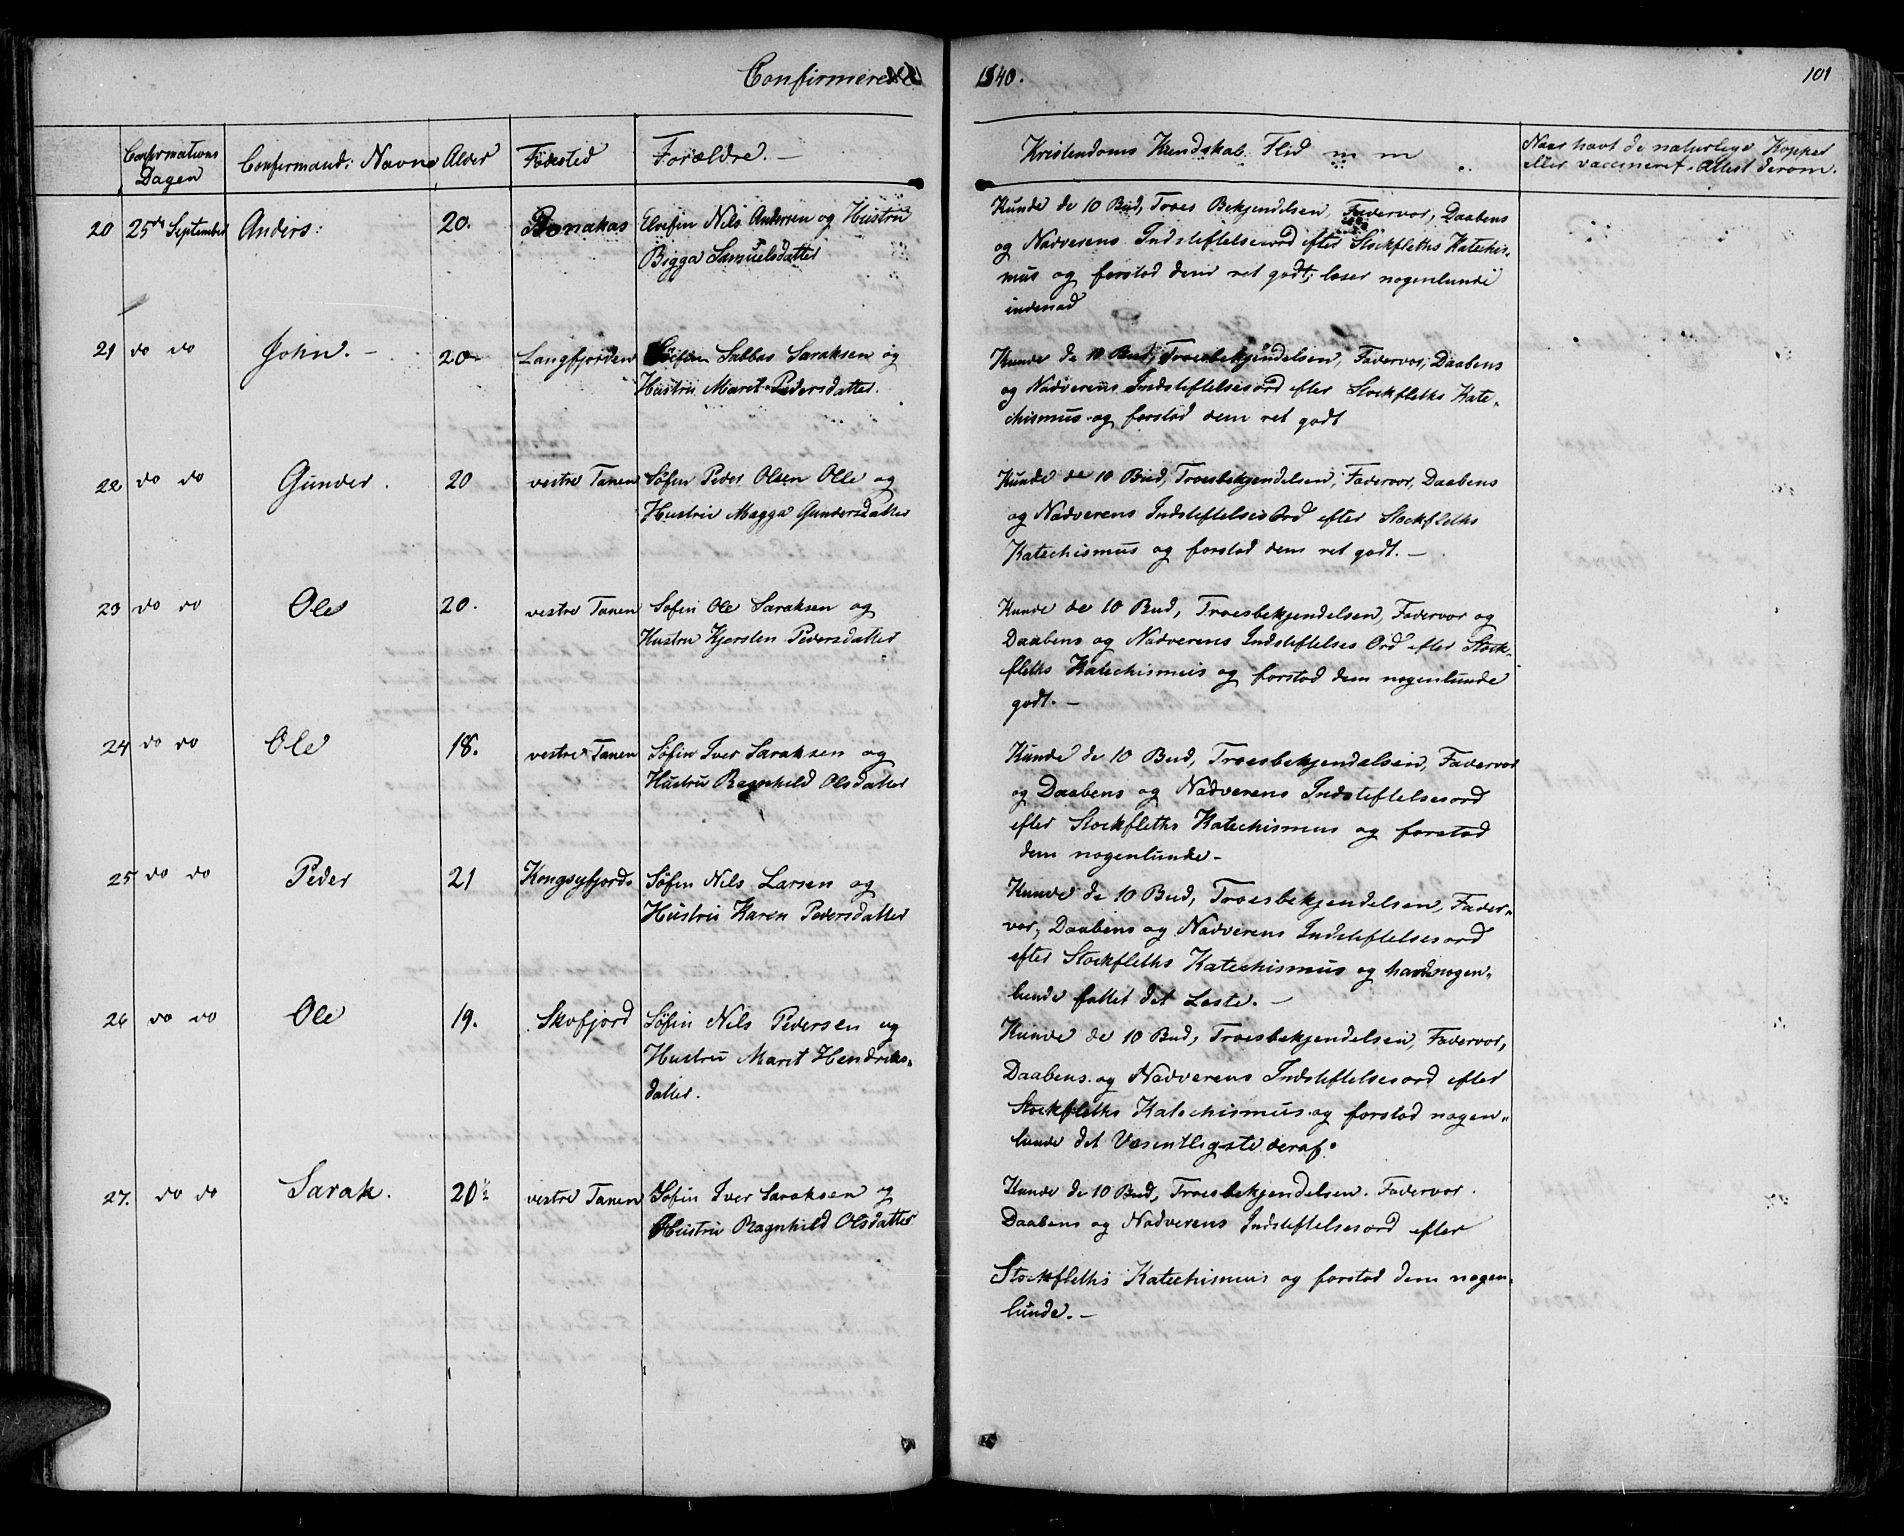 Confirmerede
1840.
101
Confirmations
Dagen
Confirmand: Navne
Alder
Fødested
Forældre. —
Kristendoms Kundskab Flid m m
Naar havt de naturlige Kopper
eller vaccineret, Attest derom.
20 25de September Anders: 20. Bonakas
Elvefin Nils Andersen og Hustru
Bigga Samuelsdatter
Kunde de 10 Bud, Troes Bekjendelsen, Fadervor, Daabens
og Nadverens Indstiftelsesord efter Stockfleths Katechis-
mus og forstod dem ret godt; læser nogenlunde
indenad
21 do do John. — 20 Langfjorden
Søfin Sabbas Saraksen og
Hustru Maret Pedersdatter.
Kunde de 10 Bud, Troesbekjendelsen, Fadervor, Daabens
og Nadverens Indstiftelsesord efter Stockfleths Kate-
chismus og forstod dem ret godt
22 do do Gunder. 20 vestre Tanen
Søfin Peder Olsen Olle og
Hustru Magga Gundersdatter
Kunde de 10 Bud, Troesbekjendelsen, Fadervor, Daabens
og Nadverens Indstiftelses Ord efter Stockfleths
Katechismus og forstod dem ret godt. —
23 do do Ole 20. vestre Tanen
Søfin Ole Saraksen og
Hustru Kjersten Pedersdatter
Kunde de 10 Bud, Troesbekjendelsen, Fadervor og
Daabens og Nadverens Indstiftelses Ord efter Stock-
fleths Katechismus og forstod dem nogenlunde
godt. —
24 do do Ole 18. vestre Tanen
Søfin Iver Saraksen og
Hustru Ragnhild Olsdatter
Kunde de 10 Bud, Troesbekjendelsen, Fadervor
og Daabens og Nadverens Indstiftelsesord
efter Stockfleths Katechismus og forstod
dem nogenlunde —
25 do do Peder 21 Kongsyfjord
Søfin Nils Larsen og
Hustru Karen Pedersdatter
Kunde de 10 Bud, Troesbekjendelsen, Fader-
vor, Daabens og Nadverens Indstiftelsesord
efter Stockfleths Katechismus og havde nogen-
lunde fattet det Læste. —
26 do do Ole 19. Skofjord
Søfin Nils Pedersen og
Hustru Marit Hendriks-
datter.
Kunde de 10 Bud, Troesbekjendelsen, Fadervor,
Daabens og Nadverens Indstiftelsesord efter
Stockfleths Katechismus og forstod nogen-
lunde det Væsentligste deraf.
27. do do Sarak. 20½ vestre Tanen
Søfin Iver Saraksen og
Hustru Ragnhild Olsdatter
Kunde de 10 Bud, Troesbekjendelsen. Fadervor.
Daabens og Nadverens Indstiftelsesord efter
Stockfleths Katechismus og forstod dem nogen-
lunde. —